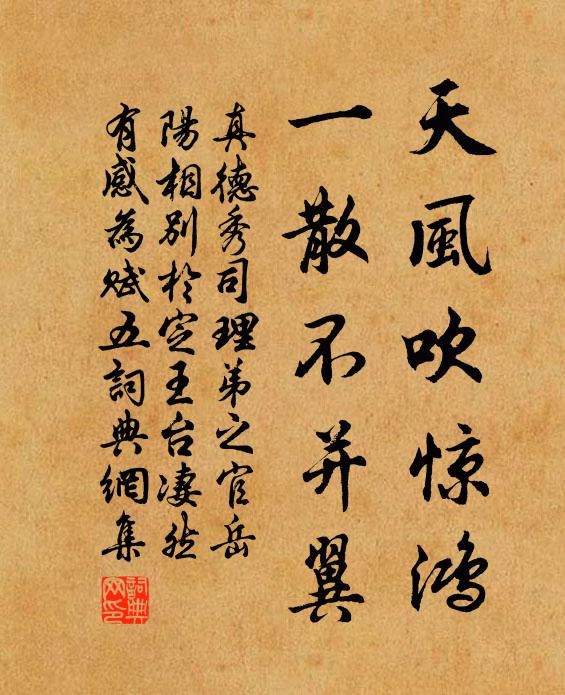 天風吹惊鸿
一散不并翼
真德秀司理弟之官岳
陽相别於定王台凄然
有感為赋五詞典網集
詞典网印